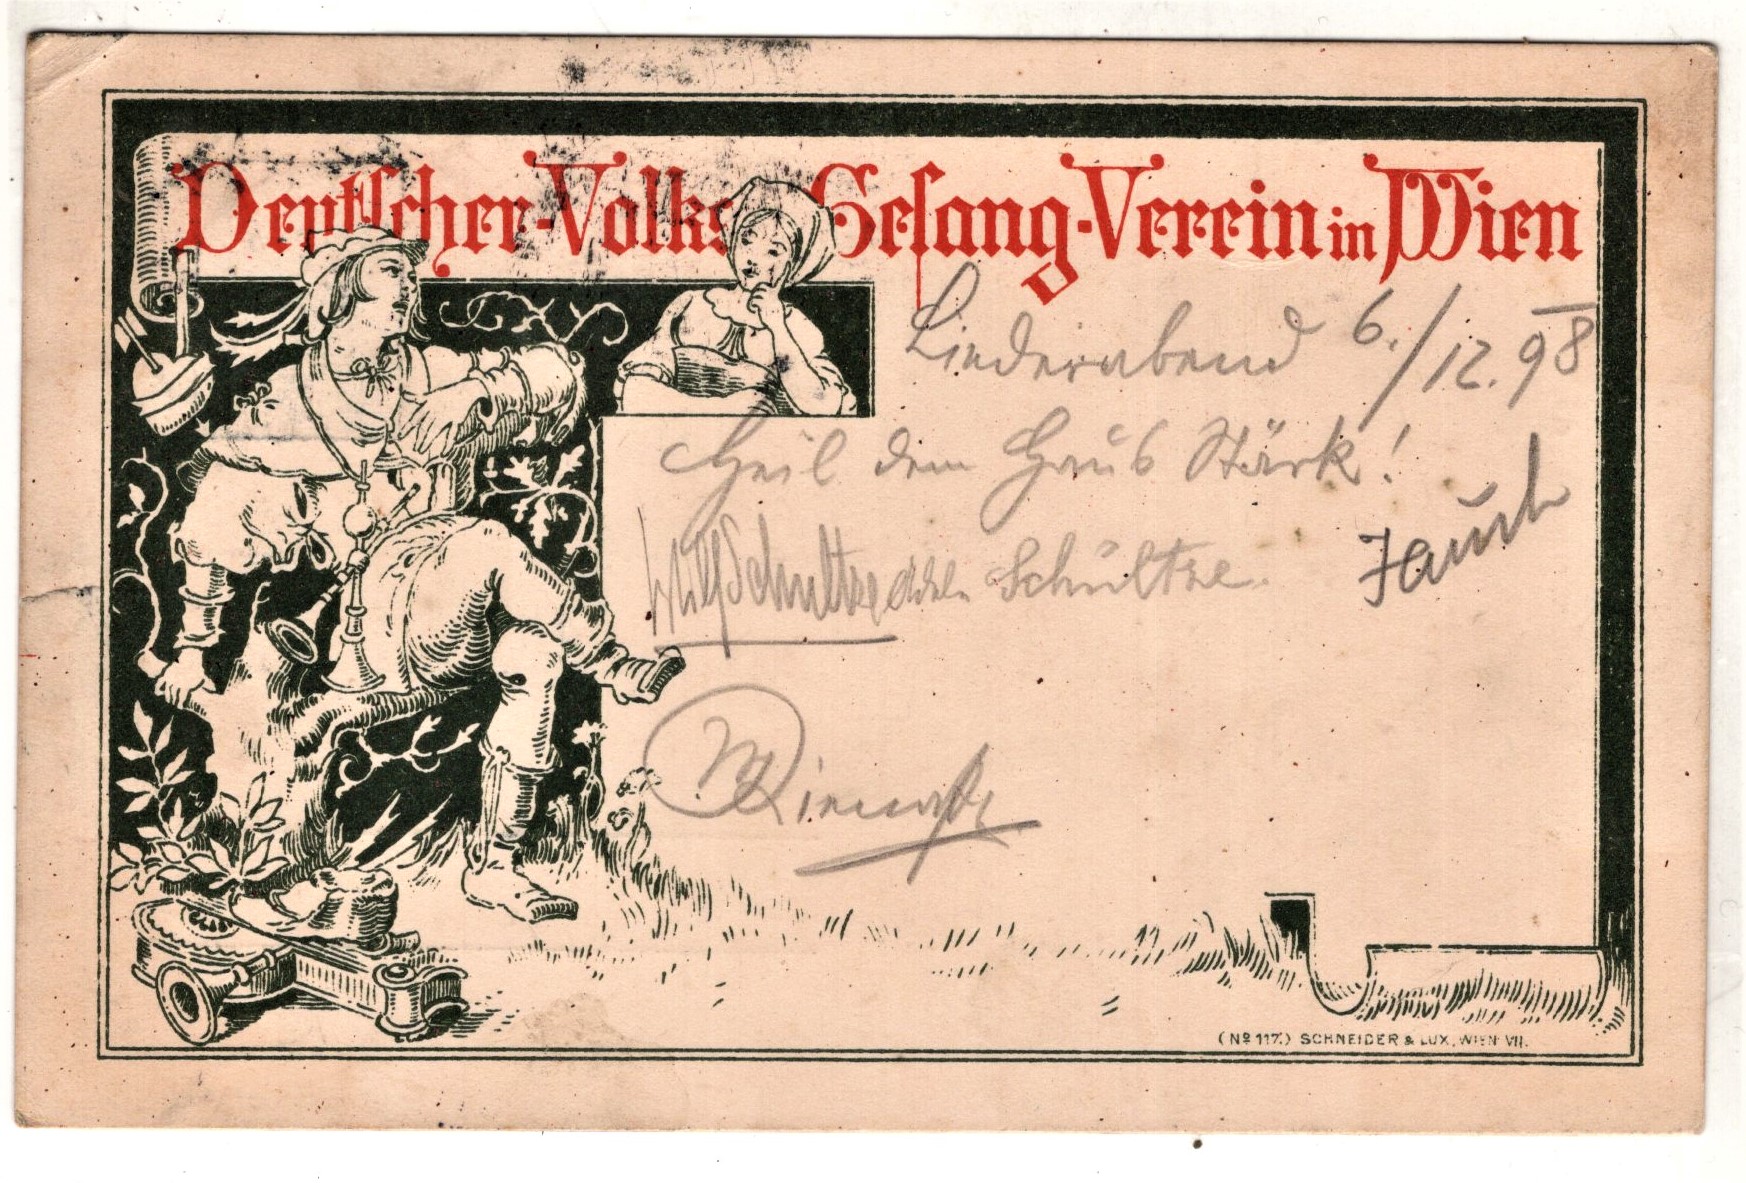 Deutscher-Volks Gesang-Verein in Wien
Liederabend 6./12.98
Heil dem Haus Stärk!
Schultze Schultze.
(No 117.) SCHNEIDER & LUX, WIEN VII.